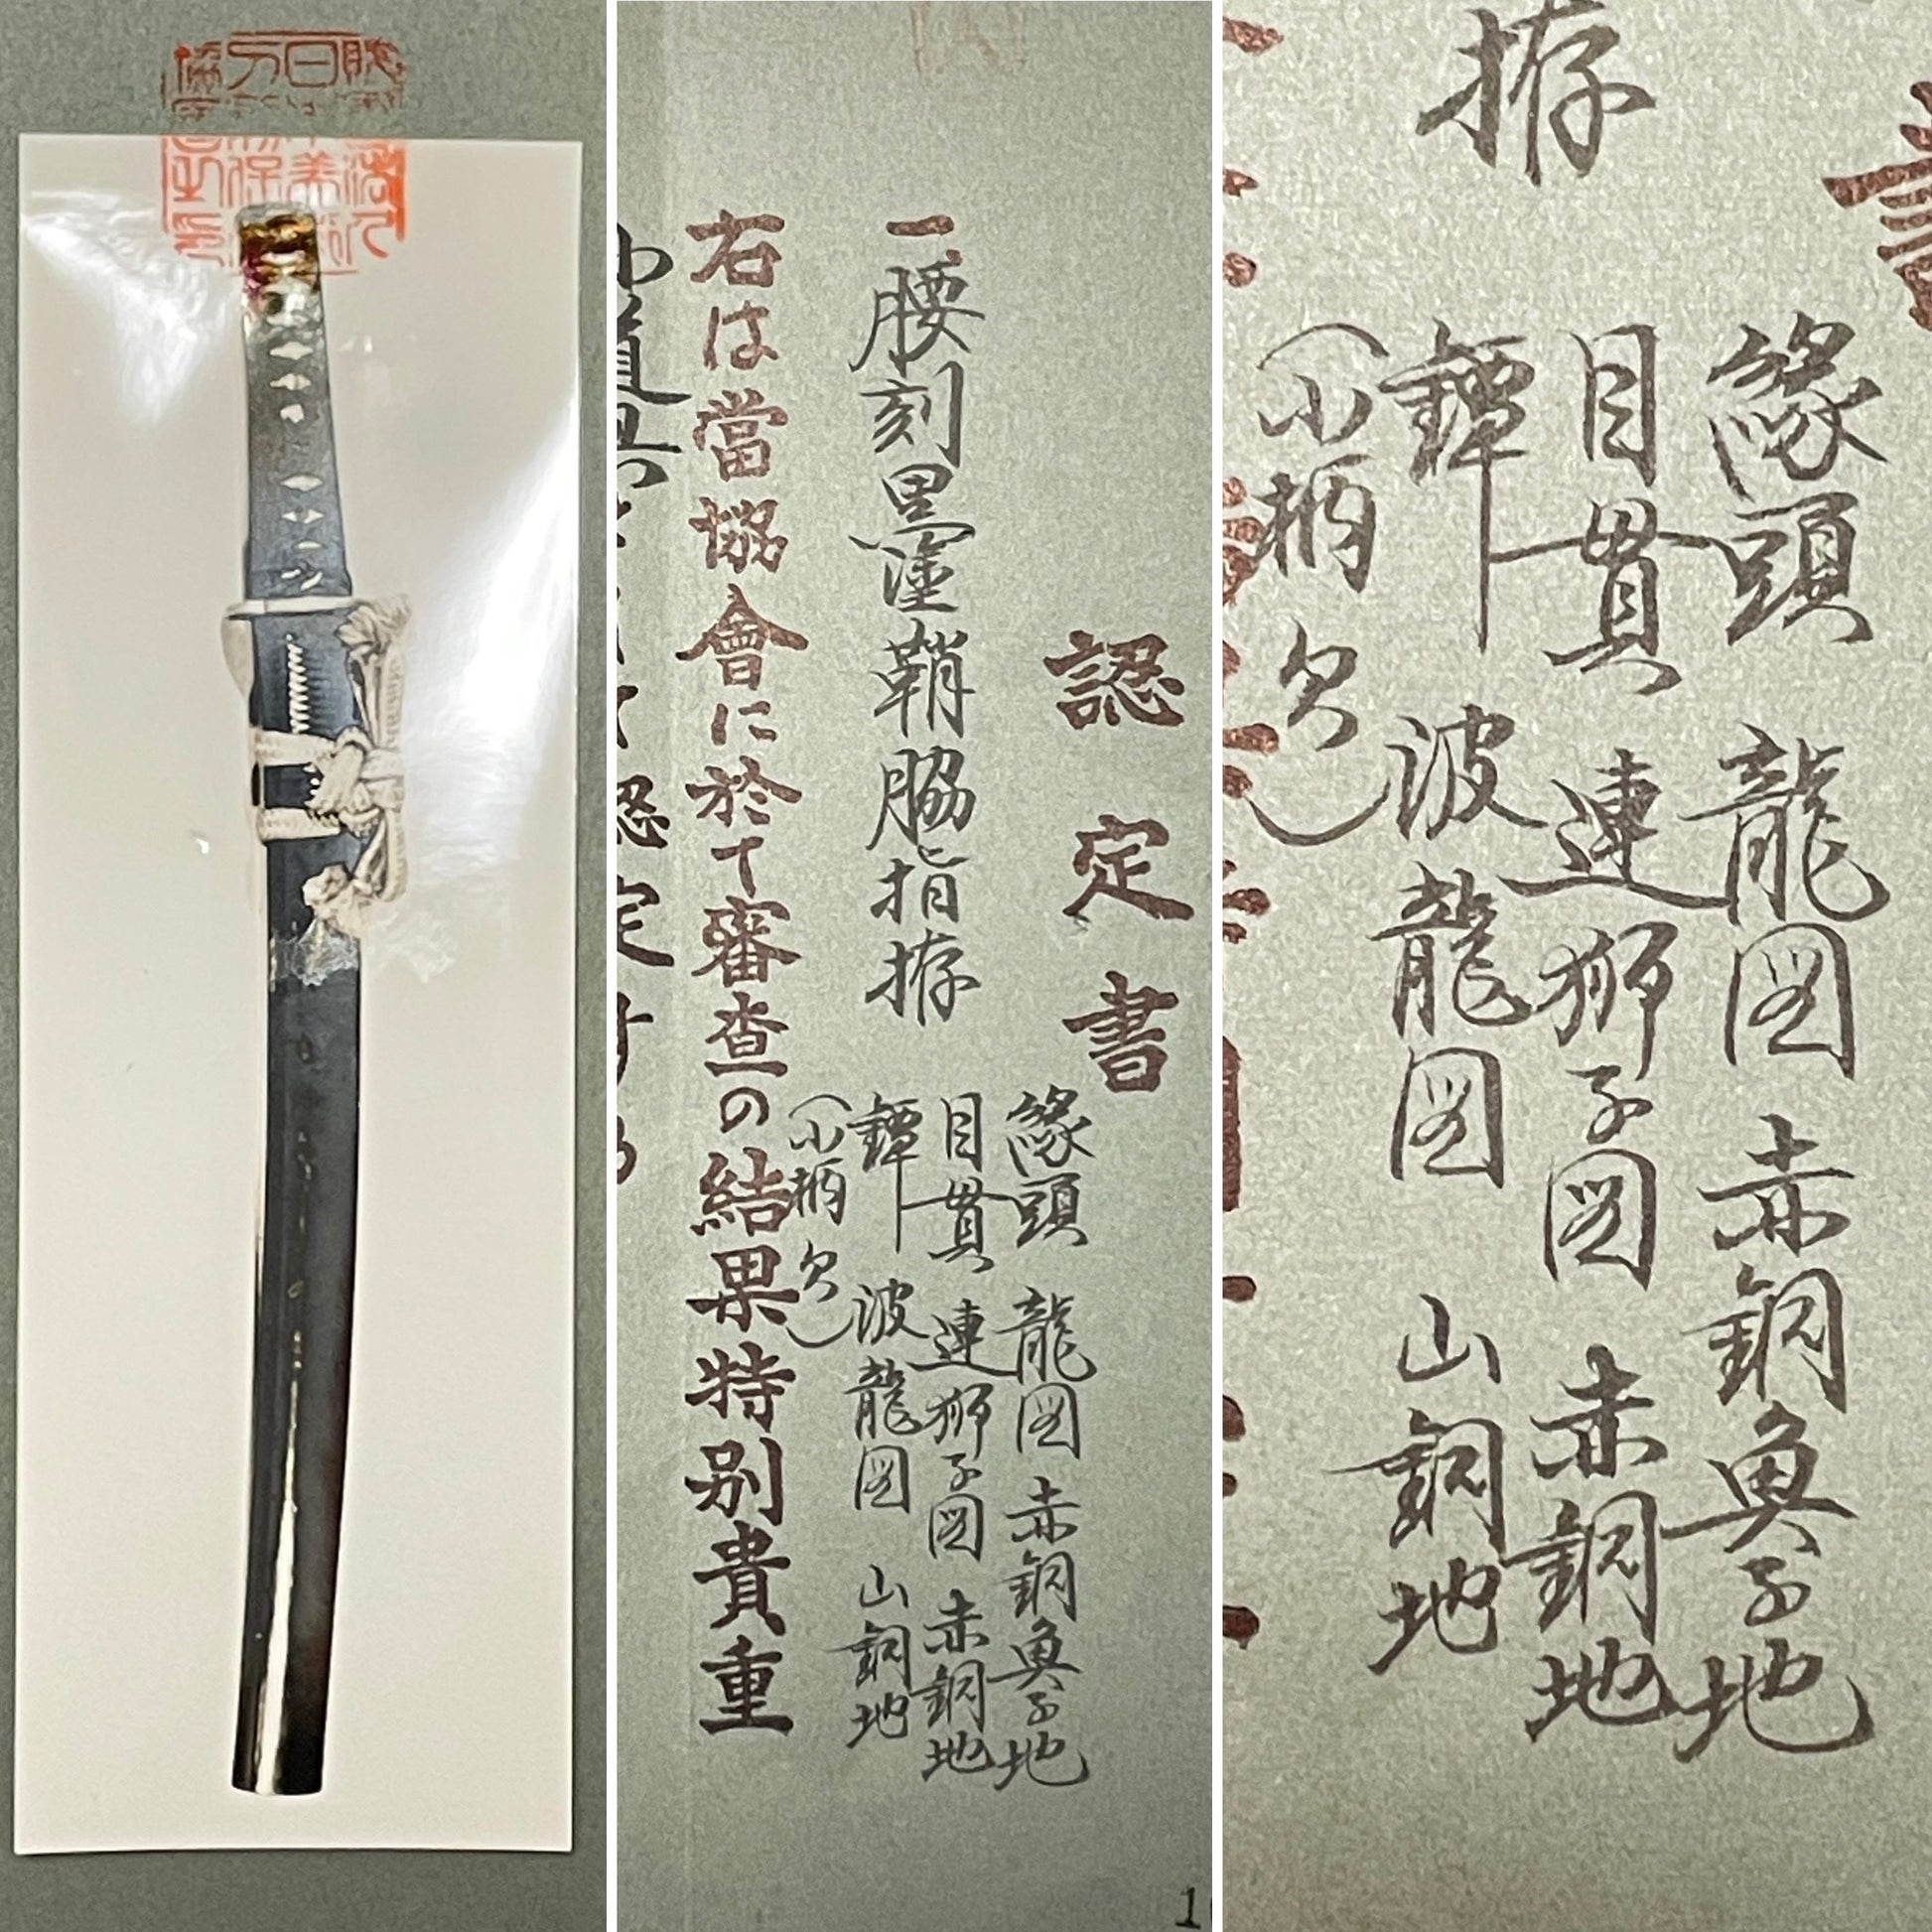 認定書
一、腰刻黒塗鞘脇指拵
縁頭 龍図 赤銅魚子地
目貫 連獅子図 赤銅地
鐔 波龍図 山銅地
(小柄欠)
右は當協會に於て審査の結果特別貴重
小道具
認定する
拵
縁頭 龍図 赤銅魚子地
目貫 連獅子図 赤銅地
鐔 波龍図 山銅地
(小柄欠)